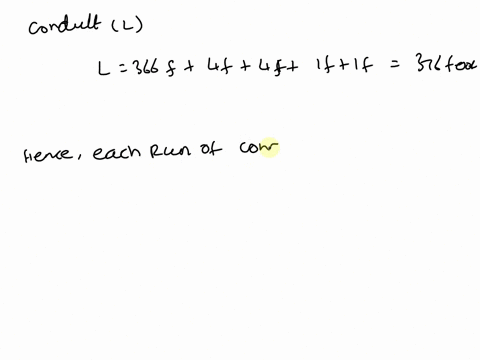 conduit (L)
L = 366 f + 4f + 4f + 1f + 1f = 376 feet
Hence, each Run of con